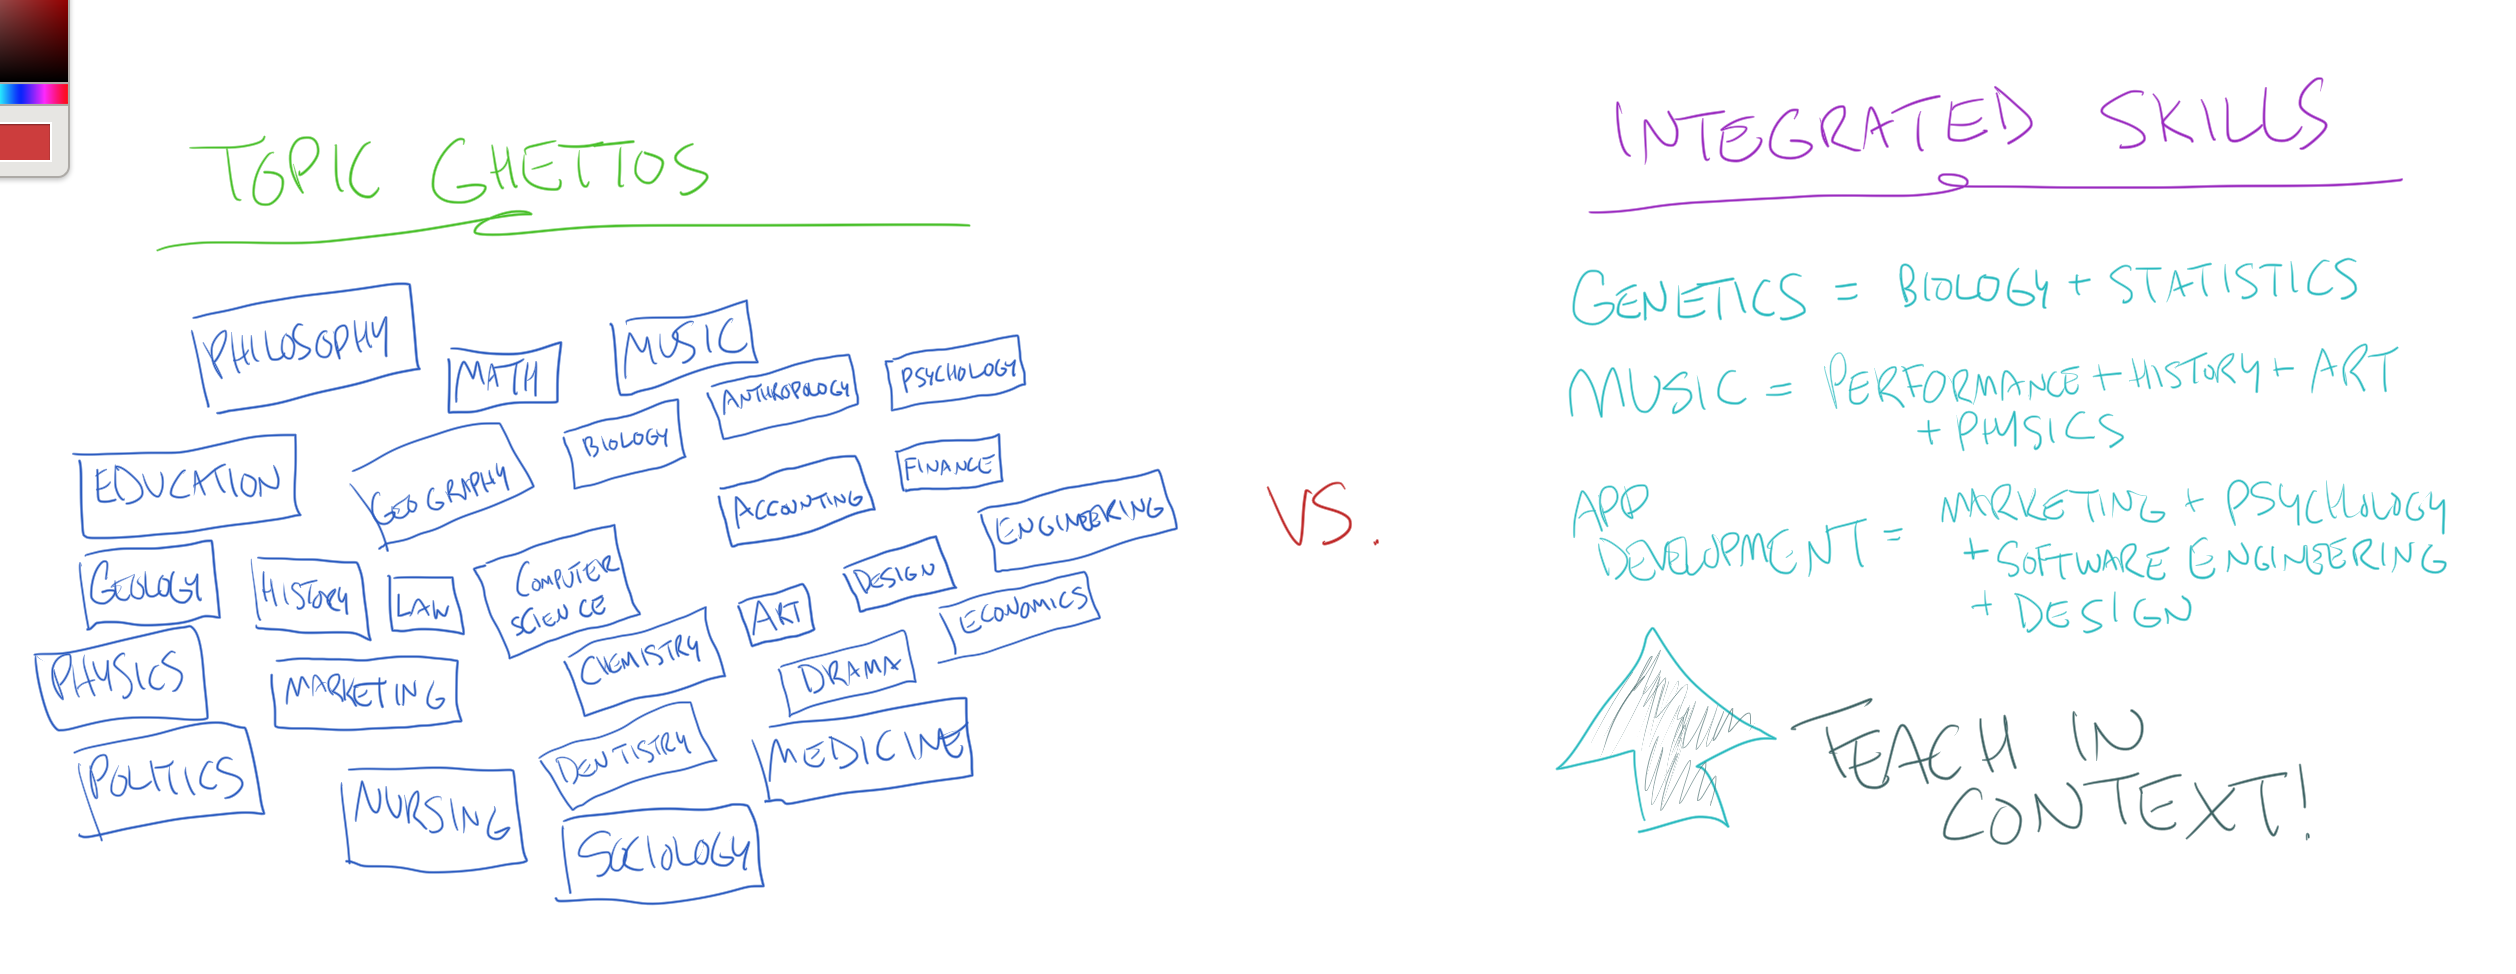 TOPIC GHETTOS
PHILOSOPHY
MATH
MUSIC
ANTHROPOLOGY
PSYCHOLOGY
EDUCATION
GEOGRAPHY
BIOLOGY
ACCOUNTING
FINANCE
ENGINEERING
GEOLOGY
HISTORY
LAW
COMPUTER
SCIENCE
ART
DESIGN
ECONOMICS
PHYSICS
MARKETING
CHEMISTRY
DRAMA
POLITICS
NURSING
DENTISTRY
MEDICINE
SOCIOLOGY
VS.
INTEGRATED SKILLS
GENETICS = BIOLOGY + STATISTICS
MUSIC = PERFORMANCE + HISTORY + ART
+ PHYSICS
APP
DEVELOPMENT = MARKETING + PSYCHOLOGY
+ SOFTWARE ENGINEERING
+ DESIGN
TEACH IN
CONTEXT!